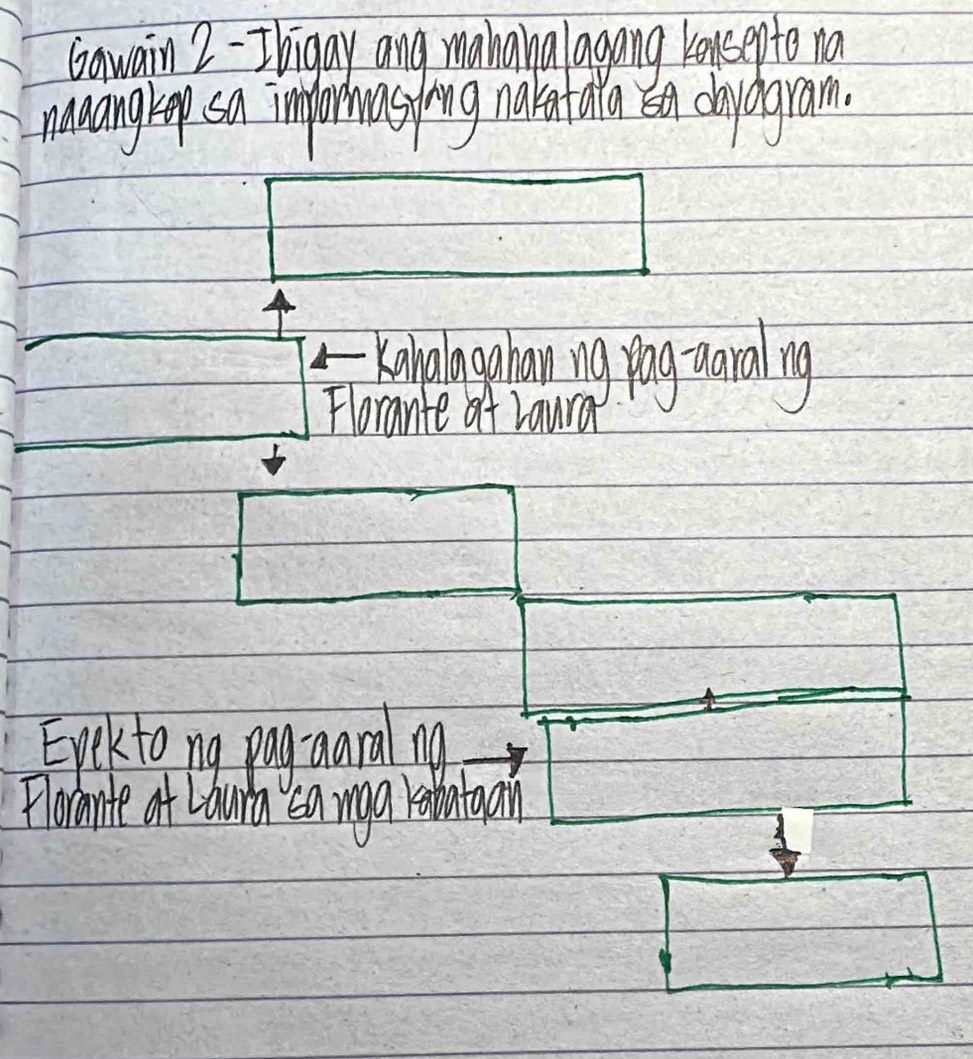 Gawain 2 - Ibigay ang mahahalagang konsepto na
naaangkop sa impormasyong nakatala sa dayagram.
Kahalagahan ng pag-aaral ng
Florante at Laura
Epekto ng pag-aaral ng
Florante at Laura sa mga kabataan